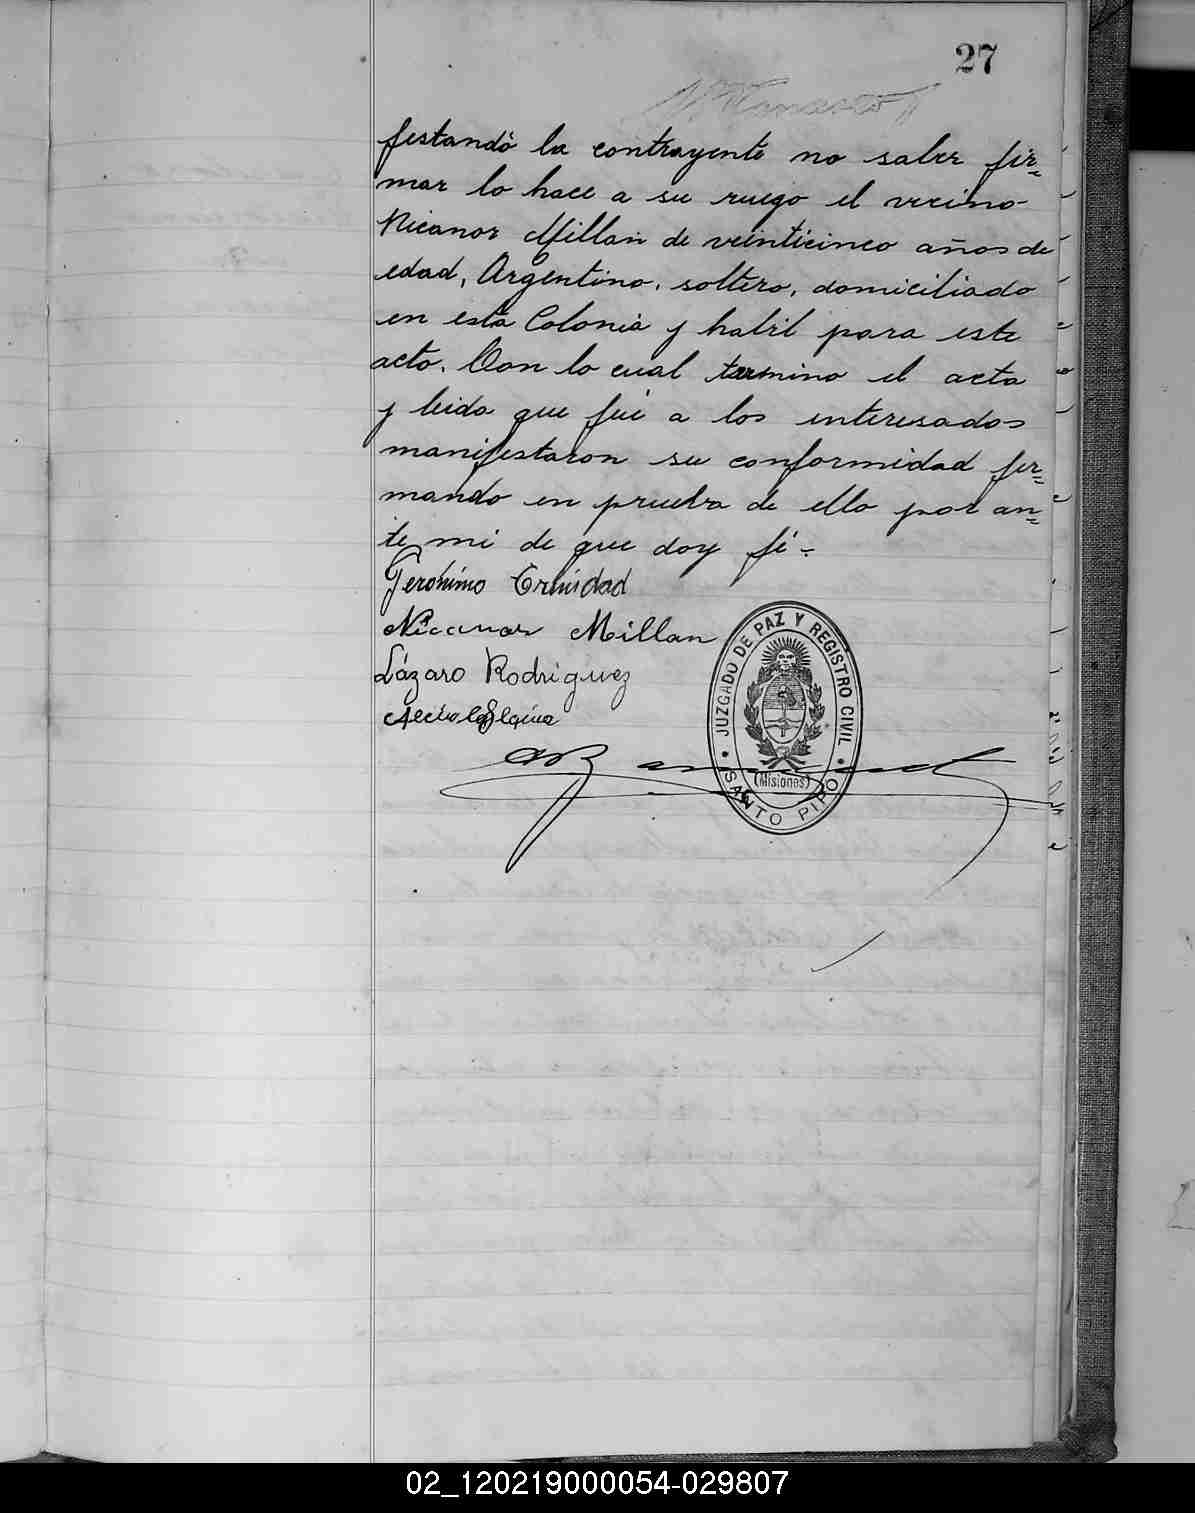 27
festando la contrayente no saber fir=
mar lo hace a su ruego el vecino
Nicanor Millan de veinticinco años de
edad, Argentino, soltero, domiciliado
en esta Colonia y habil para este
acto. Con lo cual termino el acta
y leida que fué a los interesados
manifestaron su conformidad fir=
mando en prueba de ello por an=
te mi de que doy fé.-
Gerónimo Trinidad
Nicanor Millan
Lázaro Rodriguez
JUZGADO DE PAZ Y REGISTRO CIVIL
(Misiones)
SANTO PIPO
02_120219000054-029807